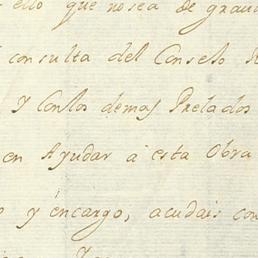 ello que no sea de grav
consulta del Consejo R
y con los demas Prelados
en Ayudar â esta Obra
o y encargo, acudais con